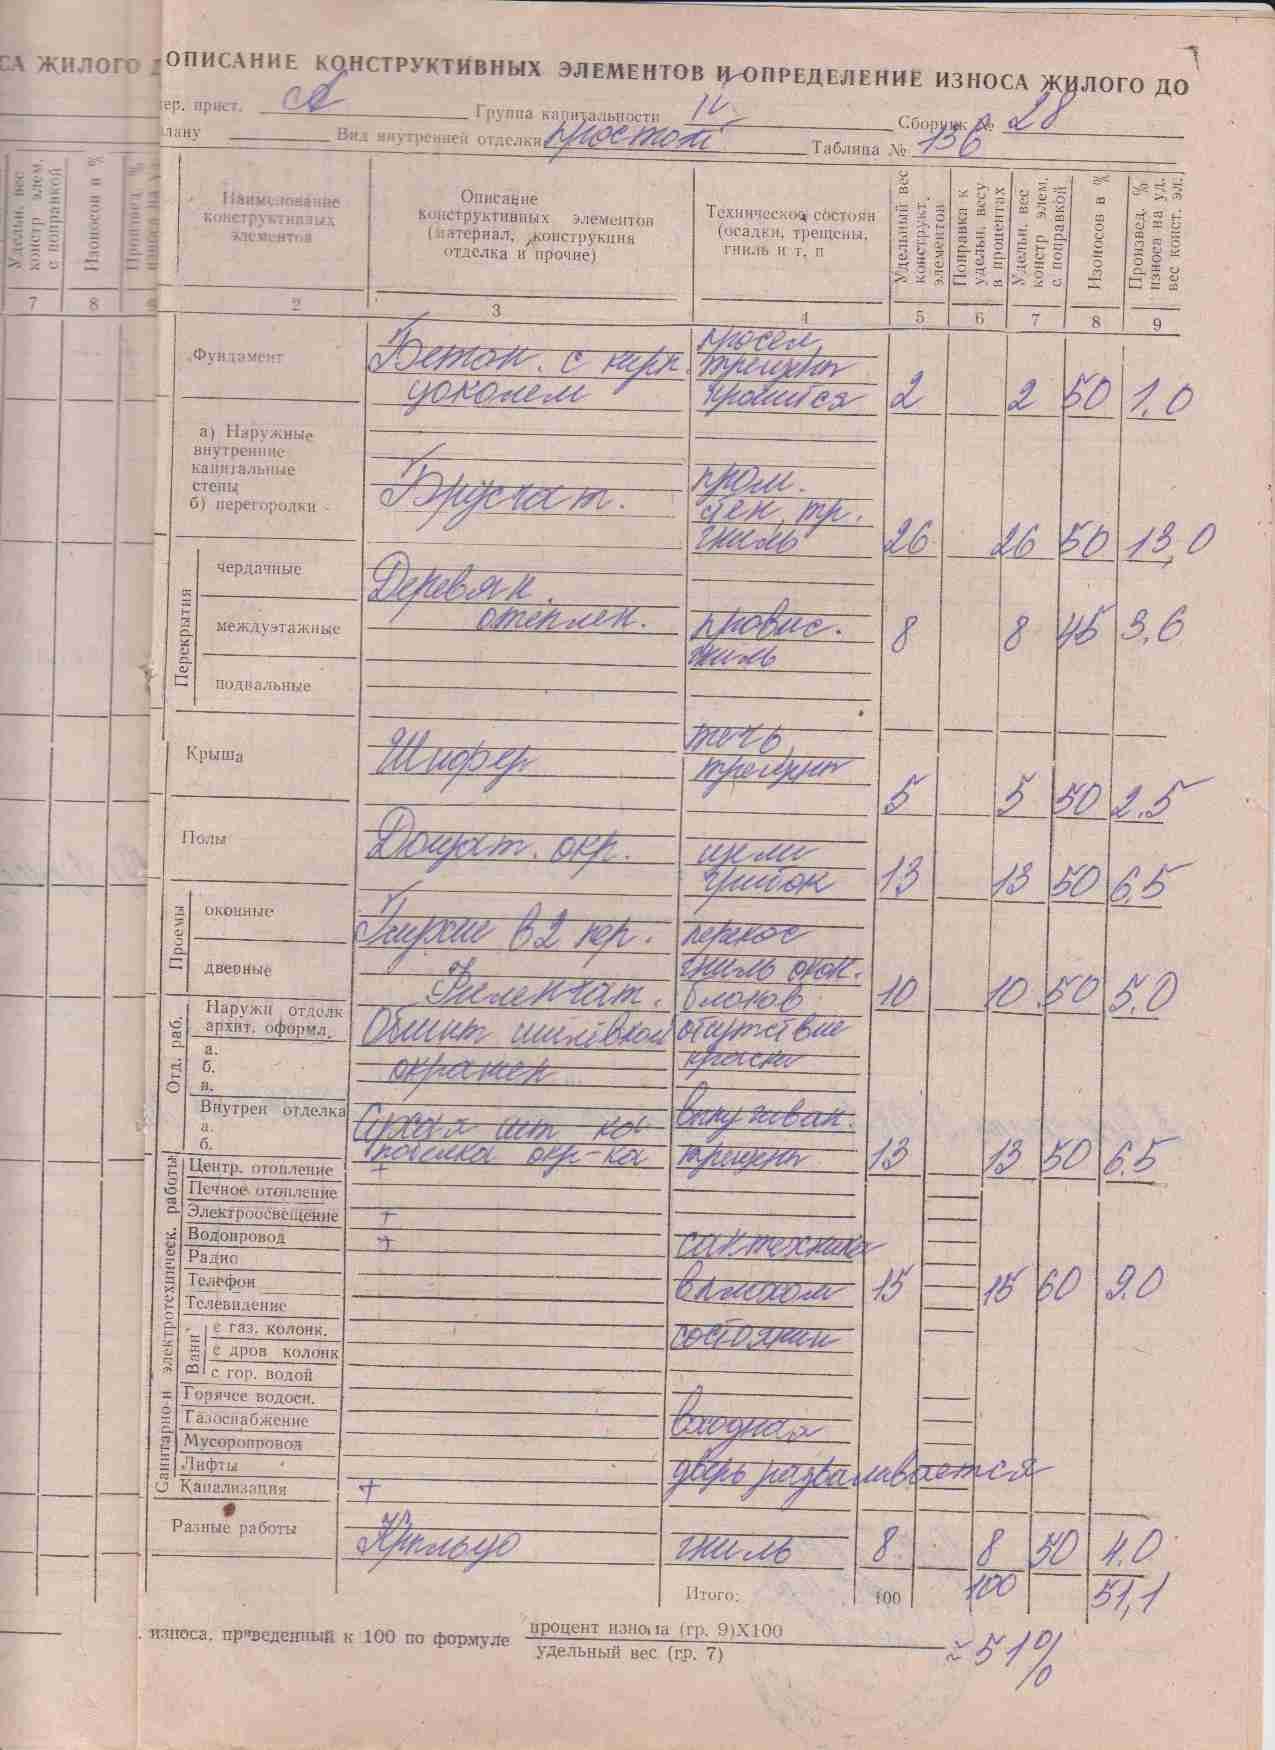 СА ЖИЛОГО Д
ОПИСАНИЕ КОНСТРУКТИВНЫХ ЭЛЕМЕНТОВ И ОПРЕДЕЛЕНИЕ ИЗНОСА ЖИЛОГО ДО
ер. прист. А Группа капитальности IV Сборник № 28
лану Вид внутренней отделки простой Таблица № 136
Удельн. вес констр элем. с поправкой
Износов в %
7 8
Наименование конструктивных элементов
Описание конструктивных элементов (материал, конструкция отделка и прочие)
Техническое состоян (осадки, трещены, гниль и т, п
Удельный вес конструкт, элементов
Поправка к удельн. весу в процентах
Удельн. вес констр элем, с поправкой
Изоносов в %
Произвед. % износа на уд. вес конст. эл.)
2 3 4 5 6 7 8 9
просел,
Фундамент Бетон. с кирп. трещины
цоколем 2 2 50 1,0
а) Наружные
внутренние
капитальные
стены
б) перегородки
Брусчат. пром.
стен, тр.
гниль 26 26 50 13,0
Перекрытия
чердачные Деревян.
междуэтажные отеплен. провис. 8 8 45 3,6
гниль
подвальные
Крыша Шифер течь,
трещины 5 5 50 2.5
Полы Дощат. окр. щели
грибок 13 13 50 6,5
Проемы
оконные Глухие в 2 пер. перекос
дверные гниль окон.
Филенчат. блоков 10 10 50 5.0
Отд. раб.
Наружн отделк
архит. оформл.
Обшит шилёвкой отсутствие
окрашен краски
а.
б.
в.
Внутрен отделка
а.
б.
Сухая шт по выпучиван.
побелка окр-ка трещины 13 13 50 6.5
Санитарно-и электротехническ. работы
Центр. отопление +
Печное отопление
Электроосвещение +
Водопровод + сантехника
Радио
Телефон в плохом 15 15 60 9.0
Телевидение
Ванн
с газ. колонк. состоянии
с дров колонк
с гор. водой
Горячее водосн.
Газоснабжение входная
Мусоропровод
Лифты дверь разваливается
Канализация +
Разные работы Крыльцо гниль 8 8 50 4.0
Итого: 100 100 51,1
износа, приведенный к 100 по формуле процент износа (гр. 9)Х100
удельный вес (гр. 7) ≈ 51%